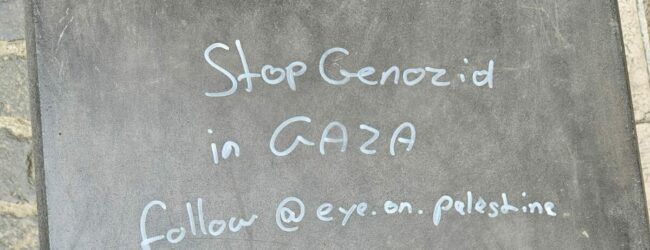 Stop Genozid
in GAZA
follow @eye.on.palestine